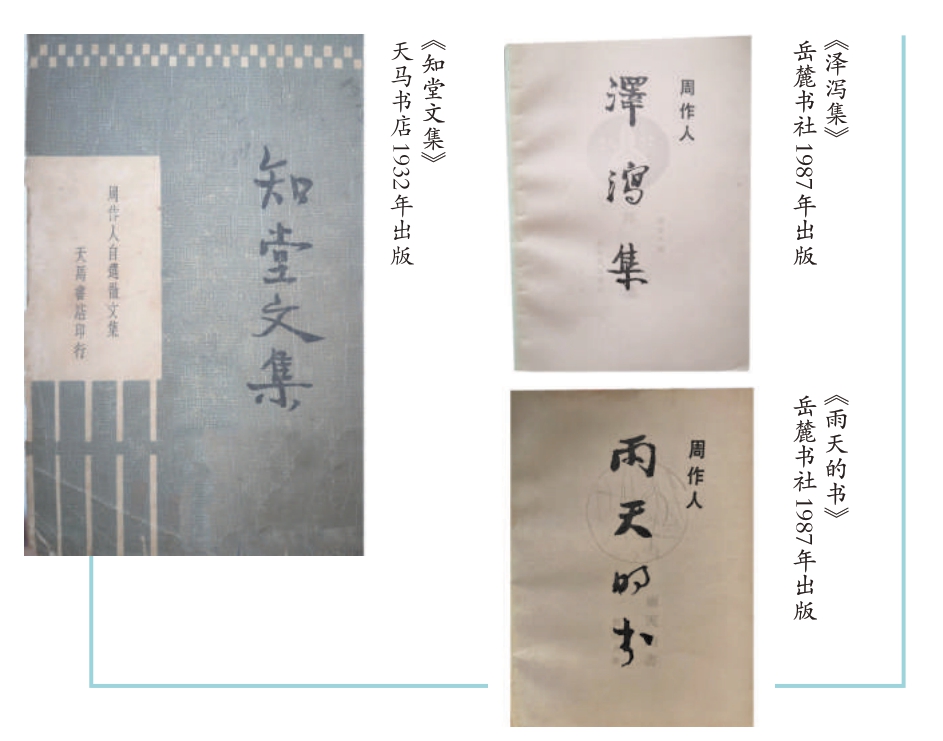 知堂文集
周作人自選散文集
天馬書店印行
《知堂文集》
天马书店1932年出版
周作人
澤瀉集
《泽泻集》
岳麓书社1987年出版
周作人
雨天的书
《雨天的书》
岳麓书社1987年出版